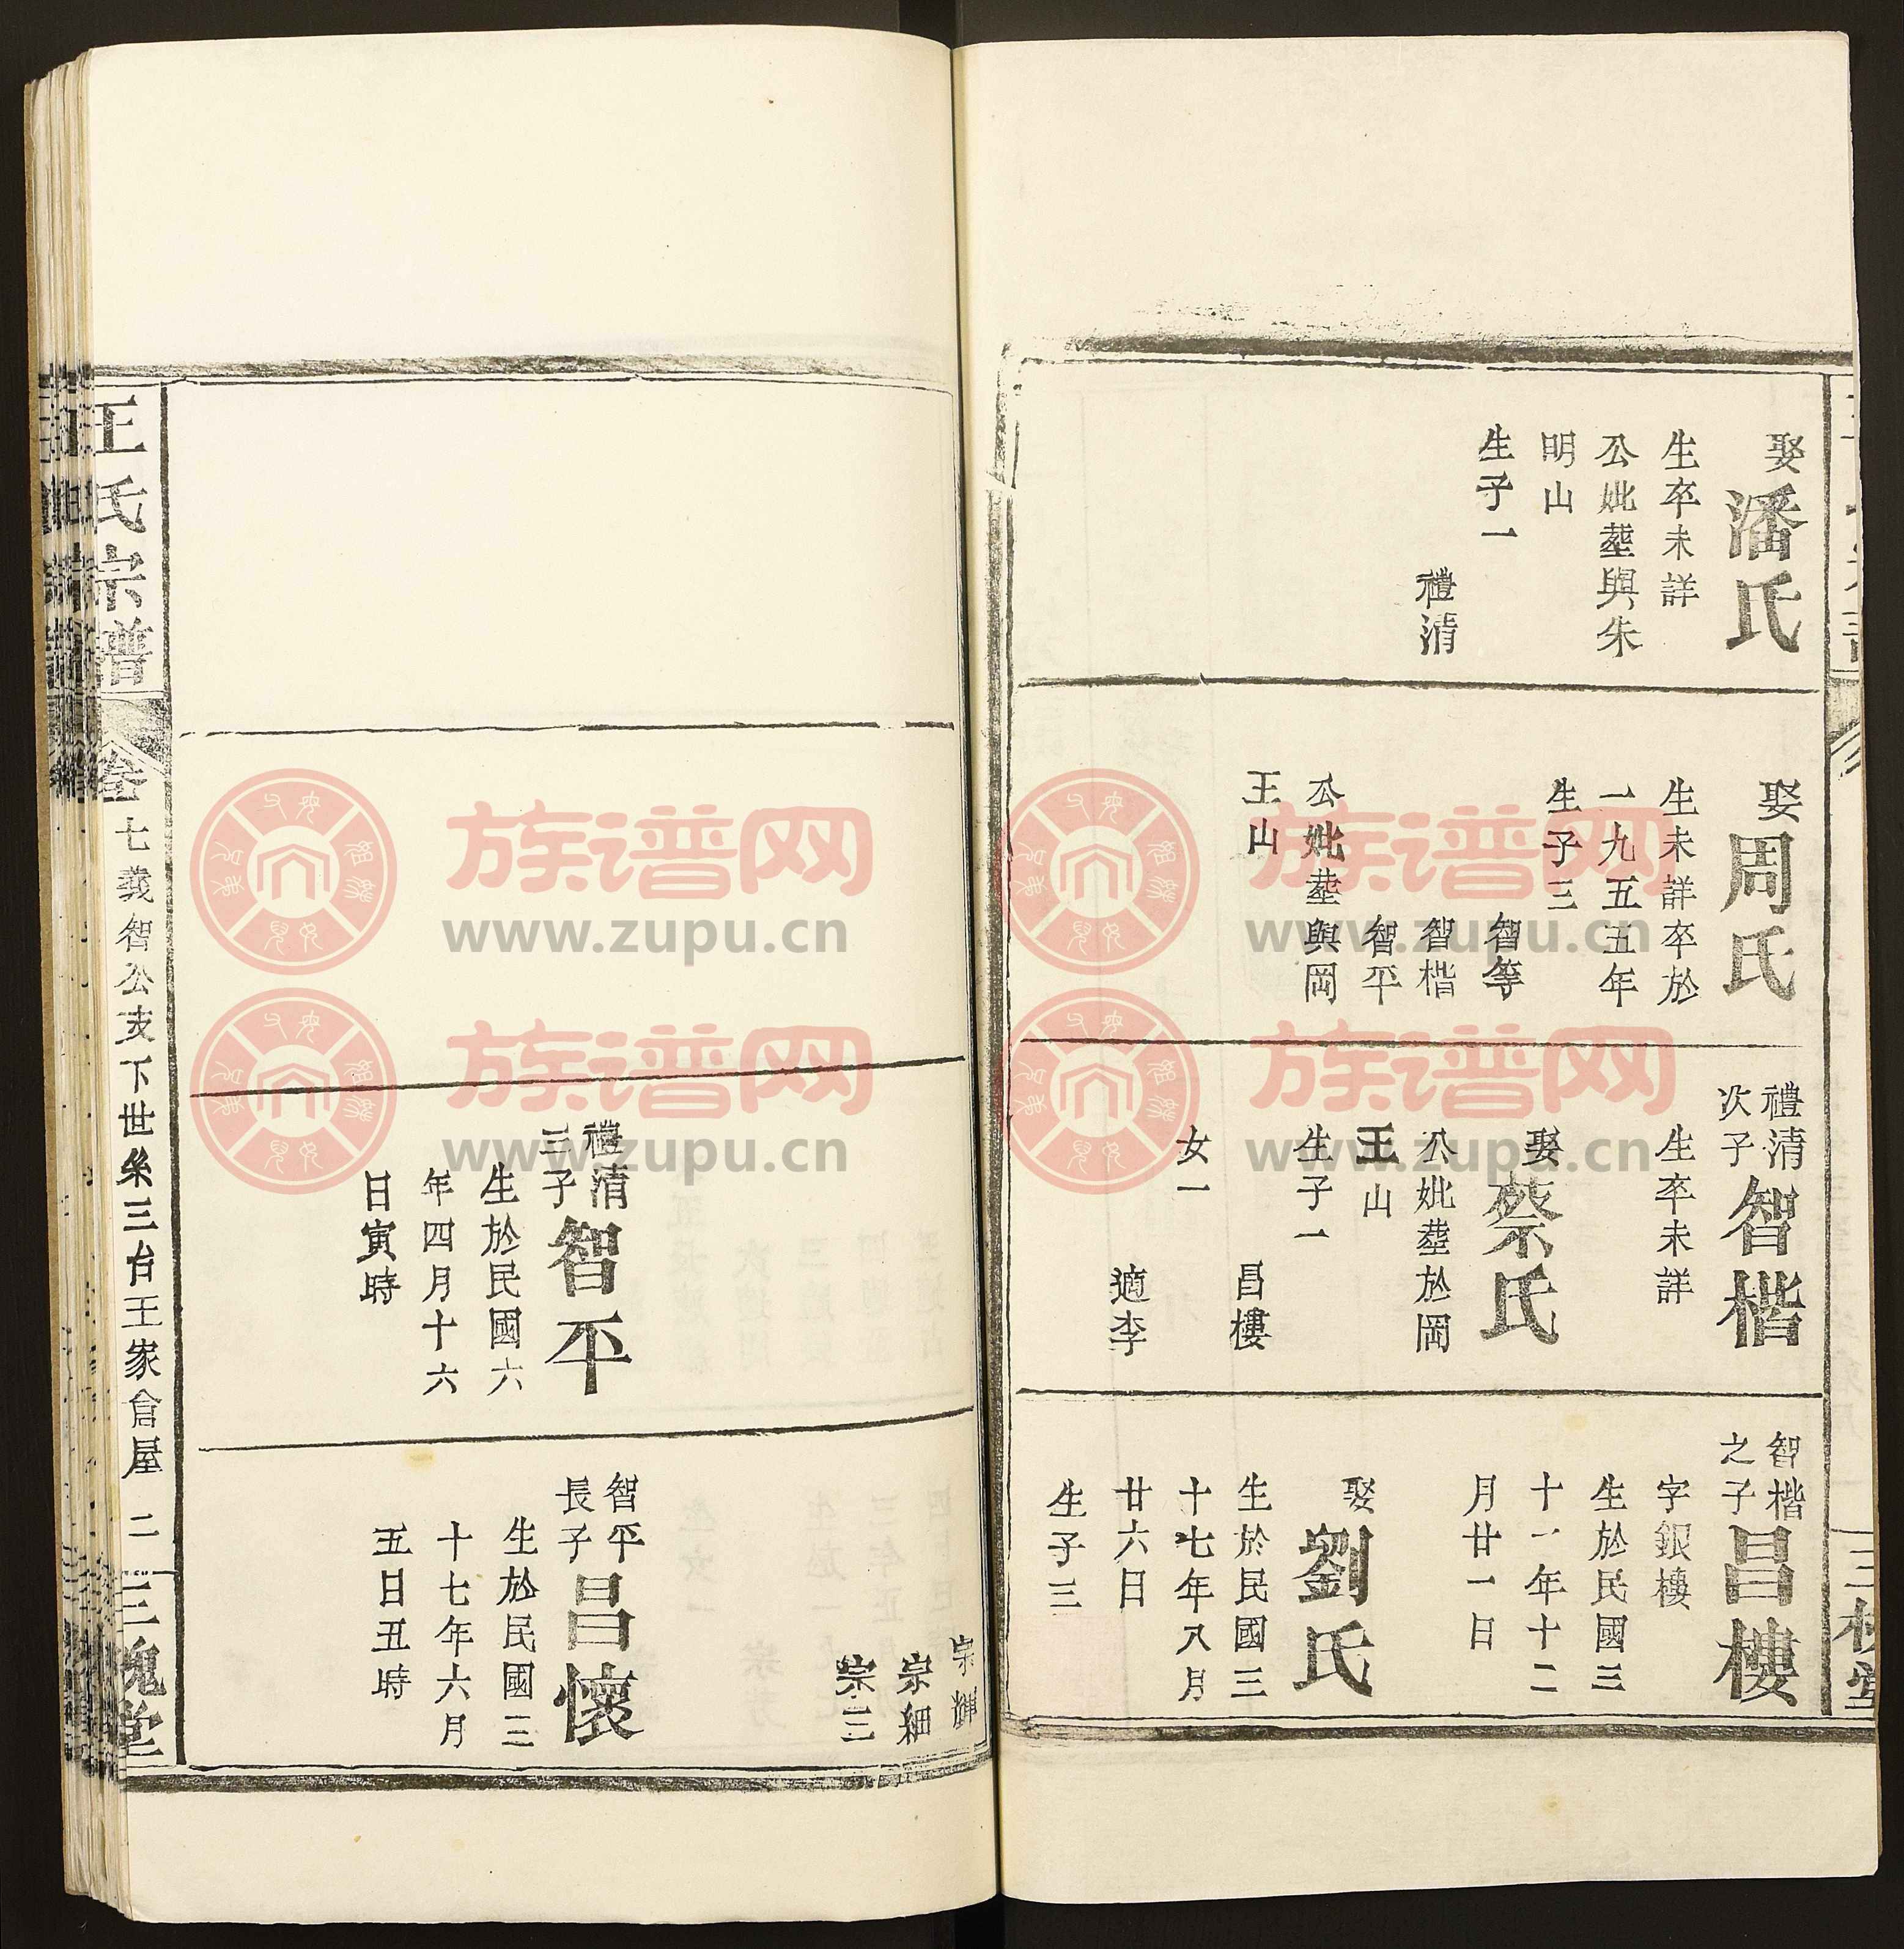 娶潘氏
生卒未詳
公妣塟與朱
明山
生子一
禮清
娶周氏
生未詳卒於
一九五五年
生子三
智等
智楷
智平
公妣塟與岡
王山
禮清
次子
智楷
生卒未詳
娶蔡氏
公妣塟於岡
王山
生子一
昌樓
女一
適李
智楷
之子
昌樓
字銀樓
生於民國三
十一年十二
月廿一日
娶劉氏
生於民國三
十七年八月
廿六日
生子三
宗輝
宗細
宗三
禮清
三子
智平
生於民國六
年四月十六
日寅時
智平
長子
昌懷
生於民國三
十七年六月
五日丑時
王氏宗譜
卷七義智公支下世系三台王家倉屋 二
三槐堂
族谱网
www.zupu.cn
族谱网
www.zupu.cn
族谱网
www.zupu.cn
族谱网
www.zupu.cn